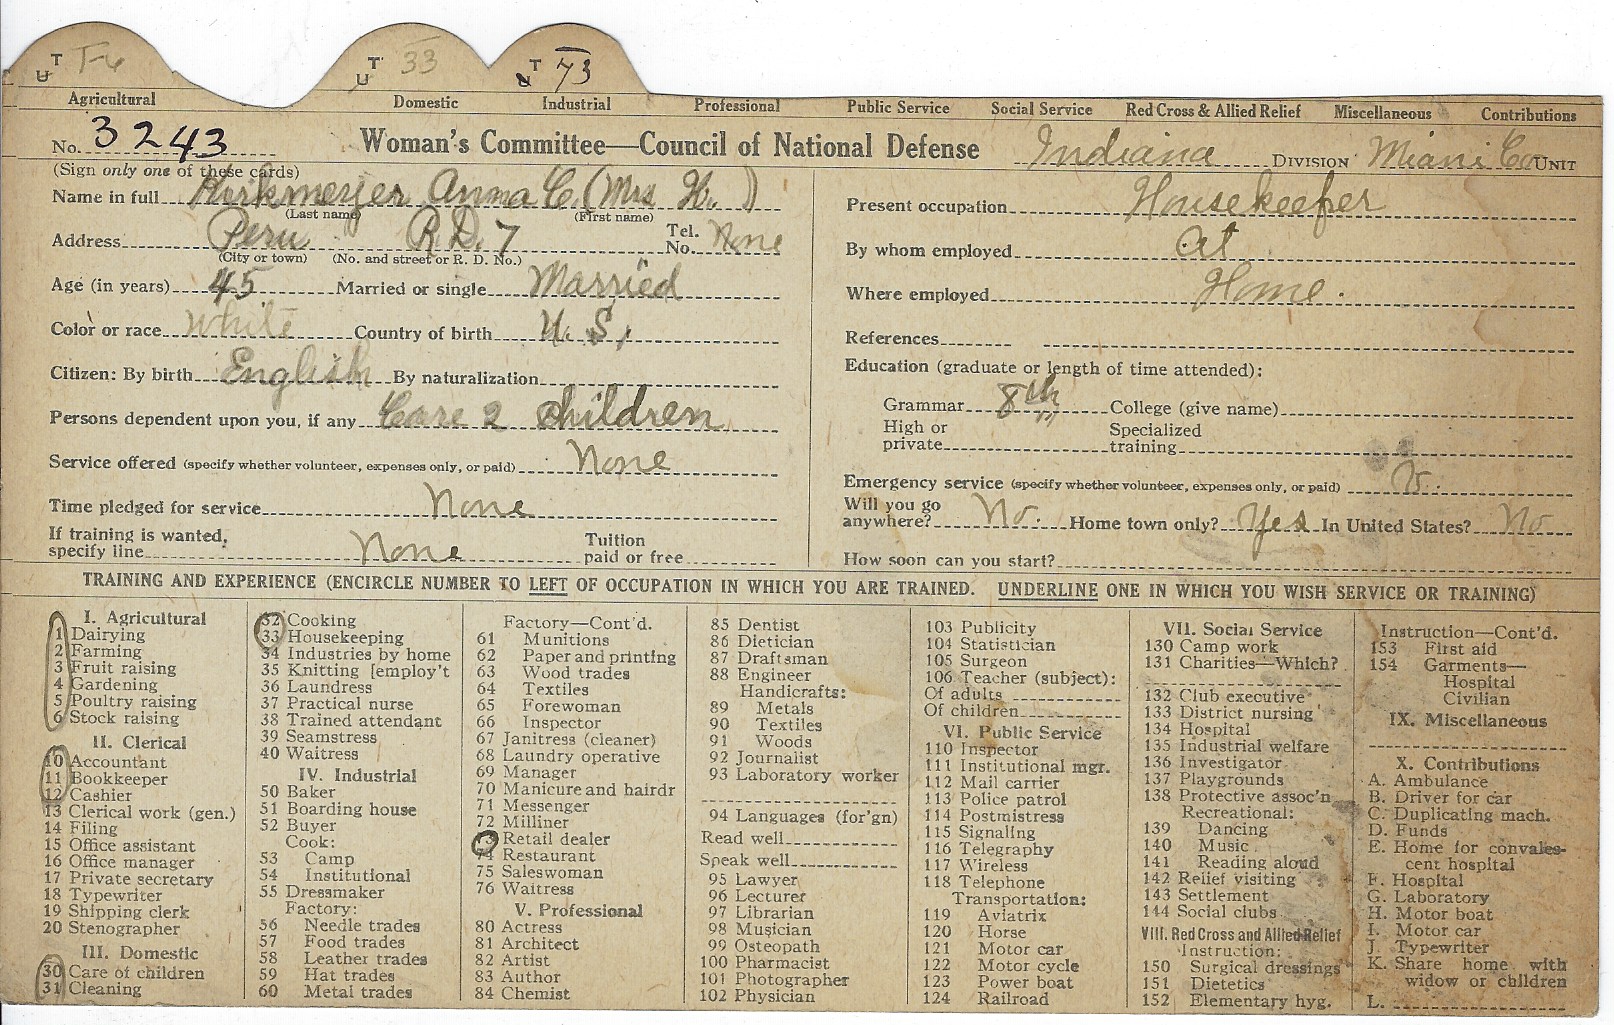 T U T-6
T U 33
T U 73
Agricultural Domestic Industrial Professional Public Service Social Service Red Cross & Allied Relief Miscellaneous Contributions
No. 3243 Woman's Committee—Council of National Defense Indiana DIVISION Miami Co. UNIT
(Sign only one of these cards)
Name in full Anna C. (Mrs H. )
(Last name) (First name)
Address Peru R.D. 7 Tel. No. None
(City or town) (No. and street or R. D. No.)
Age (in years) 45 Married or single Married
Color or race White Country of birth U. S.
Citizen: By birth English By naturalization
Persons dependent upon you, if any Care 2 children
Service offered (specify whether volunteer, expenses only, or paid) None
Time pledged for service None
If training is wanted, specify line None Tuition paid or free
Present occupation Housekeeper
By whom employed At
Where employed Home.
References
Education (graduate or length of time attended):
Grammar 8th College (give name)
High or private Specialized training
Emergency service (specify whether volunteer, expenses only, or paid) V.
Will you go anywhere? No. Home town only? Yes In United States? No
How soon can you start?
TRAINING AND EXPERIENCE (ENCIRCLE NUMBER TO LEFT OF OCCUPATION IN WHICH YOU ARE TRAINED. UNDERLINE ONE IN WHICH YOU WISH SERVICE OR TRAINING)
I. Agricultural
1 Dairying
2 Farming
3 Fruit raising
4 Gardening
5 Poultry raising
6 Stock raising
II. Clerical
10 Accountant
11 Bookkeeper
12 Cashier
13 Clerical work (gen.)
14 Filing
15 Office assistant
16 Office manager
17 Private secretary
18 Typewriter
19 Shipping clerk
20 Stenographer
III. Domestic
30 Care of children
31 Cleaning
32 Cooking
33 Housekeeping
34 Industries by home
35 Knitting [employ't
36 Laundress
37 Practical nurse
38 Trained attendant
39 Seamstress
40 Waitress
IV. Industrial
50 Baker
51 Boarding house
52 Buyer
Cook:
53 Camp
54 Institutional
55 Dressmaker
Factory:
56 Needle trades
57 Food trades
58 Leather trades
59 Hat trades
60 Metal trades
Factory—Cont'd.
61 Munitions
62 Paper and printing
63 Wood trades
64 Textiles
65 Forewoman
66 Inspector
67 Janitress (cleaner)
68 Laundry operative
69 Manager
70 Manicure and hairdr
71 Messenger
72 Milliner
73 Retail dealer
74 Restaurant
75 Saleswoman
76 Waitress
V. Professional
80 Actress
81 Architect
82 Artist
83 Author
84 Chemist
85 Dentist
86 Dietician
87 Draftsman
88 Engineer
Handicrafts:
89 Metals
90 Textiles
91 Woods
92 Journalist
93 Laboratory worker
94 Languages (for'gn)
Read well
Speak well
95 Lawyer
96 Lecturer
97 Librarian
98 Musician
99 Osteopath
100 Pharmacist
101 Photographer
102 Physician
103 Publicity
104 Statistician
105 Surgeon
106 Teacher (subject):
Of adults
Of children
VI. Public Service
110 Inspector
111 Institutional mgr.
112 Mail carrier
113 Police patrol
114 Postmistress
115 Signaling
116 Telegraphy
117 Wireless
118 Telephone
Transportation:
119 Aviatrix
120 Horse
121 Motor car
122 Motor cycle
123 Power boat
124 Railroad
VII. Social Service
130 Camp work
131 Charities—Which?
132 Club executive
133 District nursing
134 Hospital
135 Industrial welfare
136 Investigator
137 Playgrounds
138 Protective assoc'n
Recreational:
139 Dancing
140 Music
141 Reading aloud
142 Relief visiting
143 Settlement
144 Social clubs
VIII. Red Cross and Allied Relief
Instruction:
150 Surgical dressings
151 Dietetics
152 Elementary hyg.
Instruction—Cont'd.
153 First aid
154 Garments—
Hospital
Civilian
IX. Miscellaneous
X. Contributions
A. Ambulance
B. Driver for car
C. Duplicating mach.
D. Funds
E. Home for convales-
cent hospital
F. Hospital
G. Laboratory
H. Motor boat
I. Motor car
J. Typewriter
K. Share home with
widow or children
L.